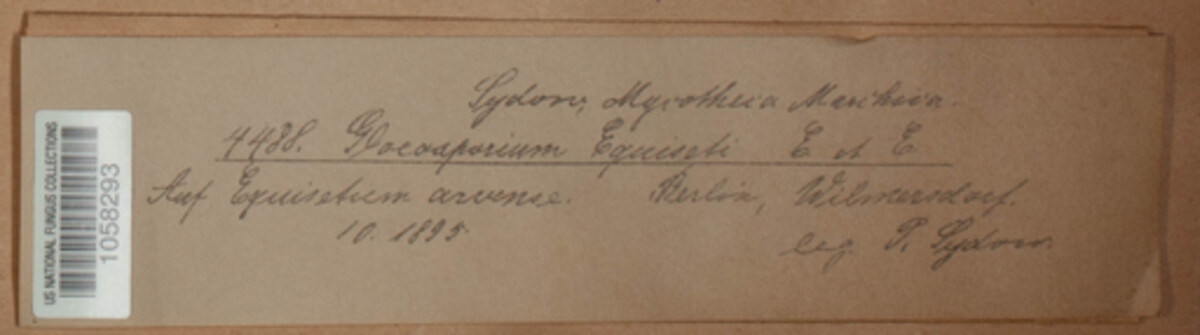 Sydow, Mycotheca Marchica.
4488. Gloeosporium Equiseti E et E
Auf Equisetum arvense. Berlin, Wilmersdorf.
10. 1895
leg. P. Sydow.
US NATIONAL FUNGUS COLLECTIONS
1058293